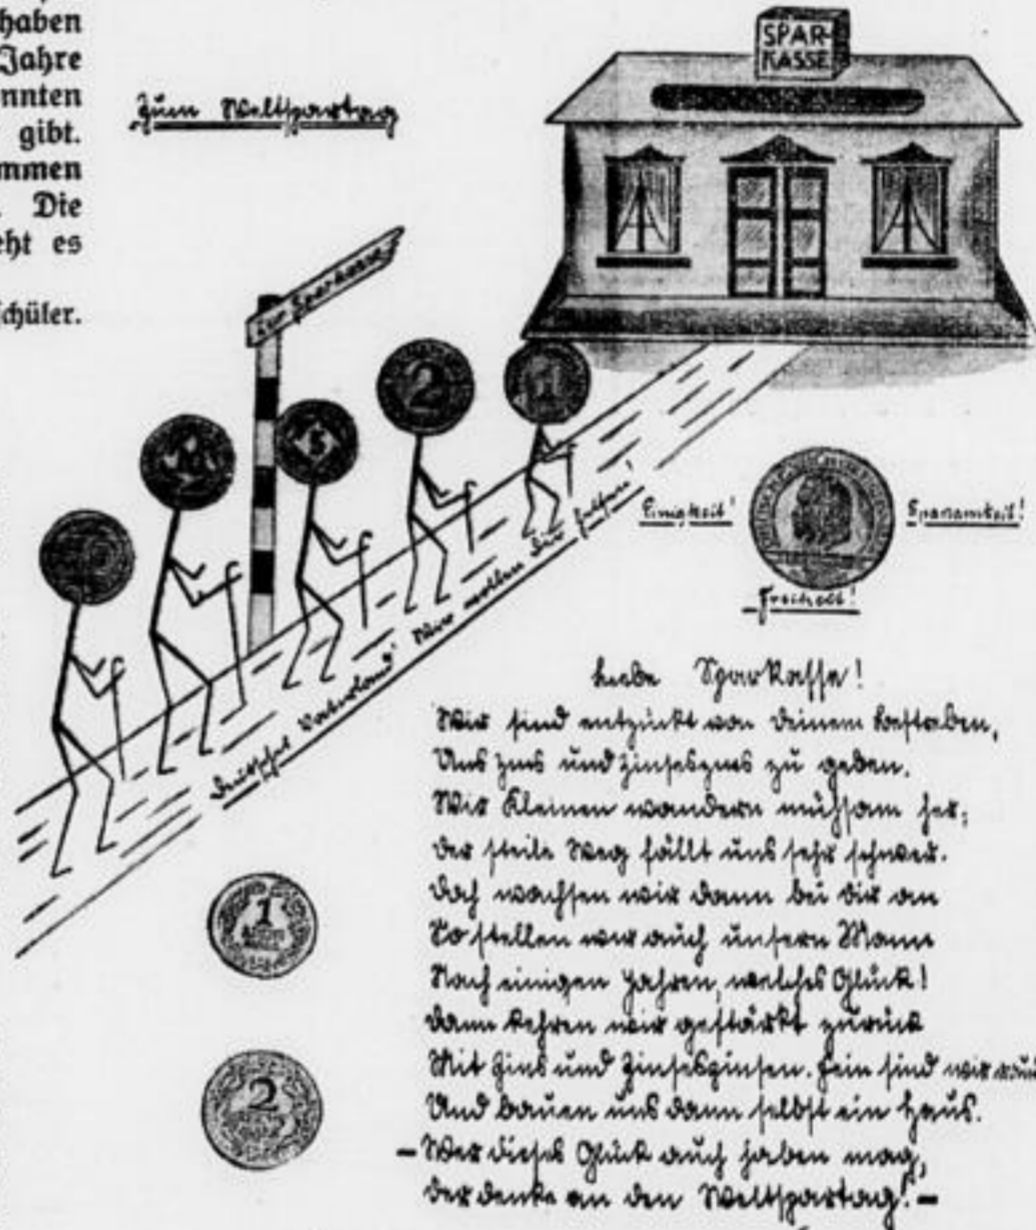 haben
Jahre
nnten
gibt.
mmen
. Die
eht es
schüler.
Zum Weltspartag
SPAR-
KASSE
Zur Sparkasse
2
1
5
10
Deutsches Vaterland! Wir wollen Dir helfen!
Einigkeit!
Sparsamkeit!
Freiheit!
Liebe Sparkasse!
Wir sind entzückt von Deinem Bestreben,
Uns Zins und Zinseszins zu geben.
Wir Kleinen wandern mühsam her;
Der steile Weg fällt uns sehr schwer.
Doch wachsen wir dann bei Dir an
So stellen wir auch unsern Mann
Nach einigen Jahren, welches Glück!
Dann kehren wir gestärkt zurück
Mit Zins und Zinseszinsen. Fein sind wir raus
Und bauen uns dann selbst ein Haus.
– Wer dieses Glück auch haben mag,
Der denke an den Weltspartag! –
1
2